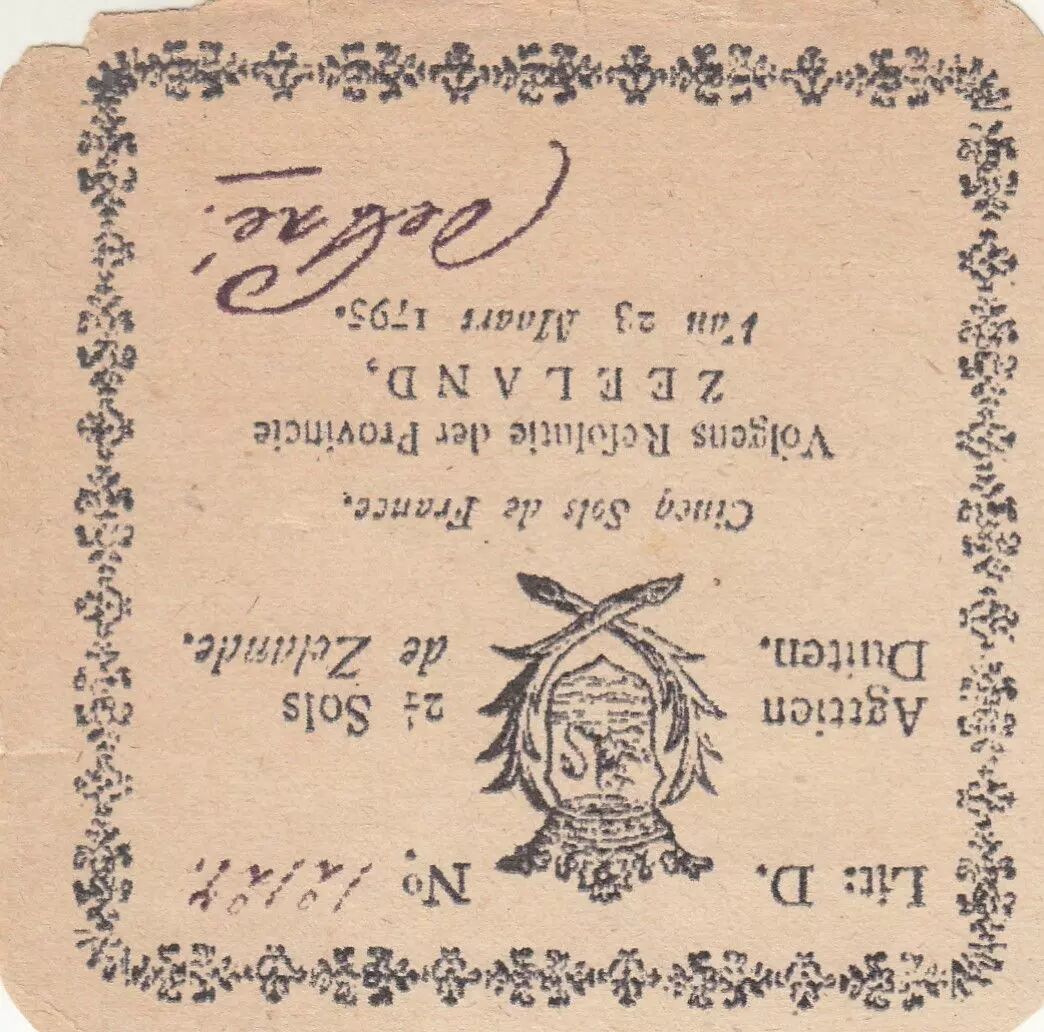 Lit: D. N°. 12127.
Agttien 2½ Sols
Duiten. de Zelande.
Cincq Sols de France.
Volgens Resolutie der Provincie
ZEELAND,
Van 23 Maart 1795.